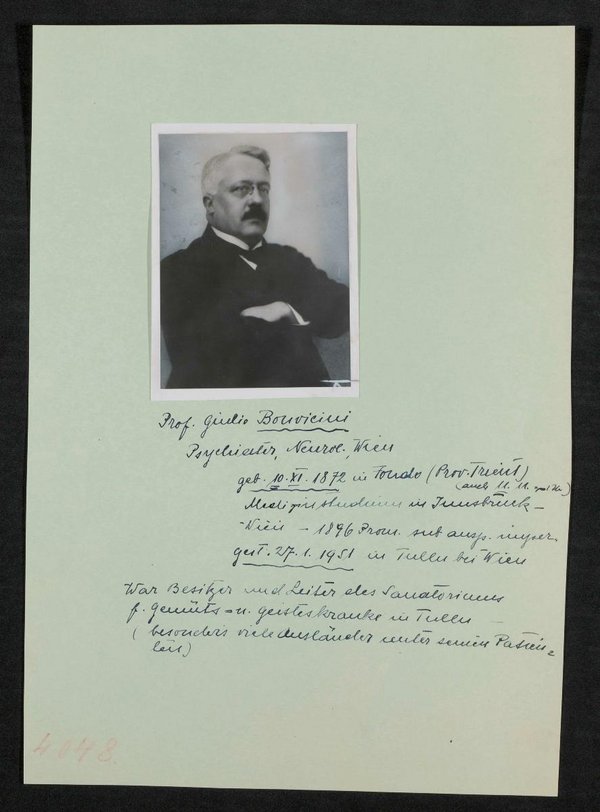 Prof. Giulio Bonvicini
Psychiater, Neurol., Wien
geb. 10.XI.1872 in Fondo (Prov. Trient)
(auch 11.11.
Medizinstudium in Innsbruck –
Wien – 1896 Prom. sub ausp. imper.
gest. 27.1.1951 in Tulln bei Wien
War Besitzer und Leiter des Sanatoriums
f. gemüts- u. geisteskranke in Tulln –
(besonders viele Ausländer unter seinen Patien=
ten)
4048.